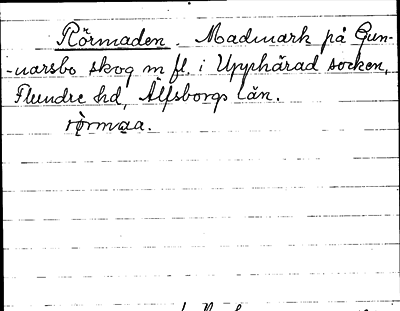 Rörmaden. Madmark på Gun-
-narsbo skog m fl. i Upphärad socken,
Flundre hd, Älfsborgs län.
rörmaa.